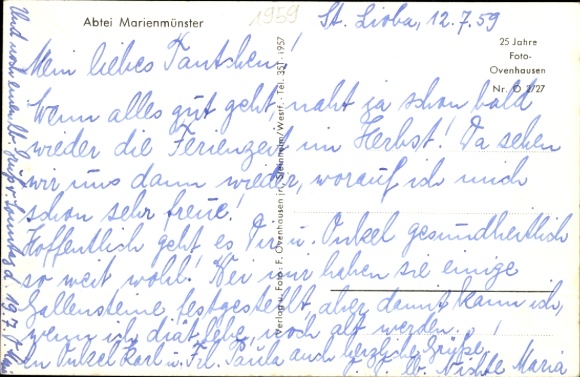 Abtei Marienmünster
1959
St. Lioba, 12.7.59
25 Jahre
Foto-
Ovenhausen
Nr. O 2/27
Mein liebes Tantchen!
Wenn alles gut geht, naht ja schon bald
wieder die Ferienzeit im Herbst! Da sehen
wir uns dann wieder, worauf ich mich
schon sehr freue!
Hoffentlich geht es Dir u. Onkel gesundheitlich
so weit wohl! Bei mir haben sie einige
Gallensteine festgestellt aber damit kann ich,
wenn ich diät lebe, noch alt werden.
An Onkel Karl u. Frl. Paula auch herzliche Grüße,
lb. Nichte Maria
Und noch einen lb. Gruß v. Sonntag d. 19.7.
Verlag u. Foto: F. Ovenhausen jr., Steinheim/Westf. Tel: 351 - 1957